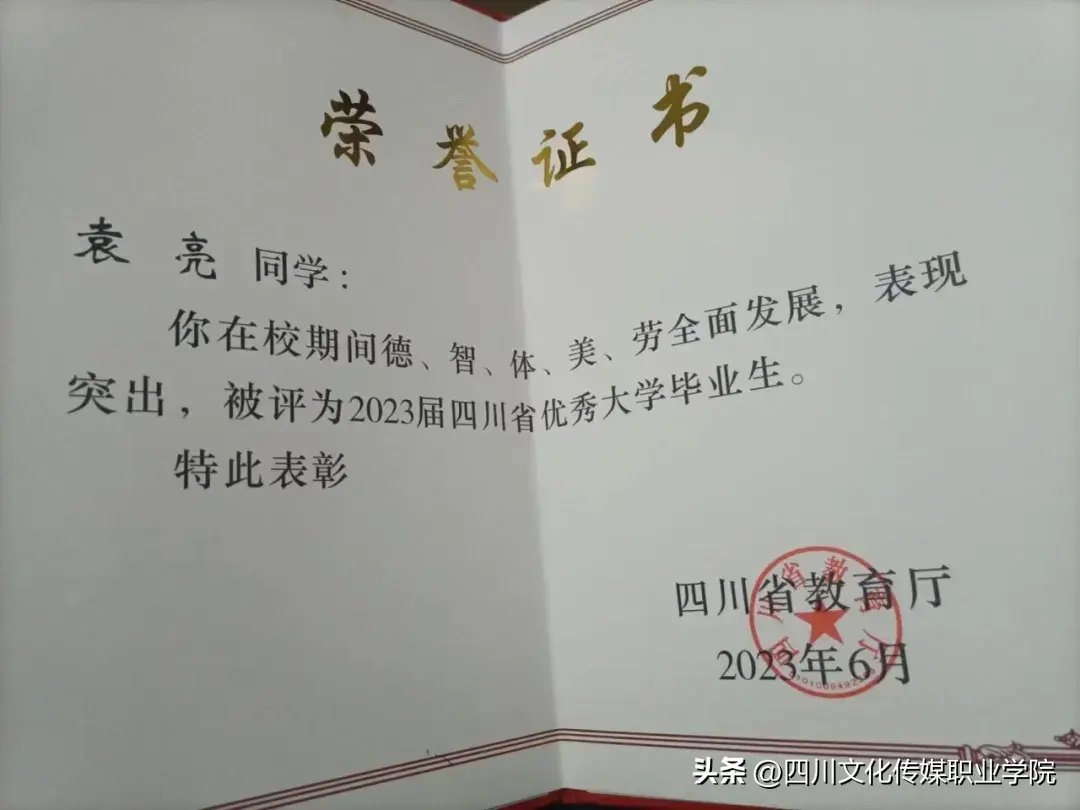 荣誉证书
袁 亮 同学：
你在校期间德、智、体、美、劳全面发展，表现
突出，被评为2023届四川省优秀大学毕业生。
特此表彰
四川省教育厅
2023年6月
四川省教育厅
头条 @四川文化传媒职业学院